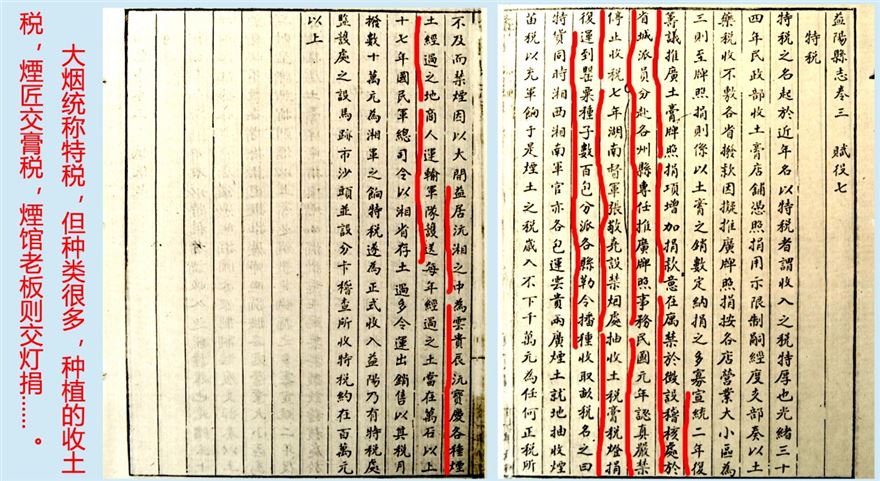 益陽縣志卷三　賦役七
特税
特税之名起於近年名以特税者謂收入之税特厚也光緒三十
四年民政部收土膏店鋪憑照捐用示限制嗣經度支部奏以土
藥税收不敷各省撥款因擬推廣牌照捐按各店營業大小區為
三則至牌照捐則係以土膏之銷數定納捐之多寡宣統二年復
籌議推廣土膏牌照捐項增加捐款意在厲禁於徵設稽核處於
省城派員分赴各州縣專任推廣牌照事務民國元年認真嚴禁
停止收税七年湖南督軍張敬堯設禁烟處抽收土税膏税燈捐
復運到罌粟種子數百包分派各縣勒令播種收取畝税名之曰
特貨同時湘西湘南軍官亦各包運雲貴兩廣煙土就地抽收煙
苗税以充軍餉于是煙土之税歲入不下千萬元為任何正税所
不及而禁煙因以大開益居沅湘之中為雲貴辰沅寶慶各種煙
土經過之地商人運輸軍隊護送每年經過之土當在萬石以上
十七年國民軍總司令以湘省存土過多令運出銷售以其税月
撥數十萬元為湘軍之餉特税遂為正式收入益陽乃有特税處
監護處之設馬跡市沙頭並設分卡稽查所收特税約在百萬元
以上
大烟统称特税，但种类很多，种植的收土
税，煙匠交膏税，煙馆老板则交灯捐……。